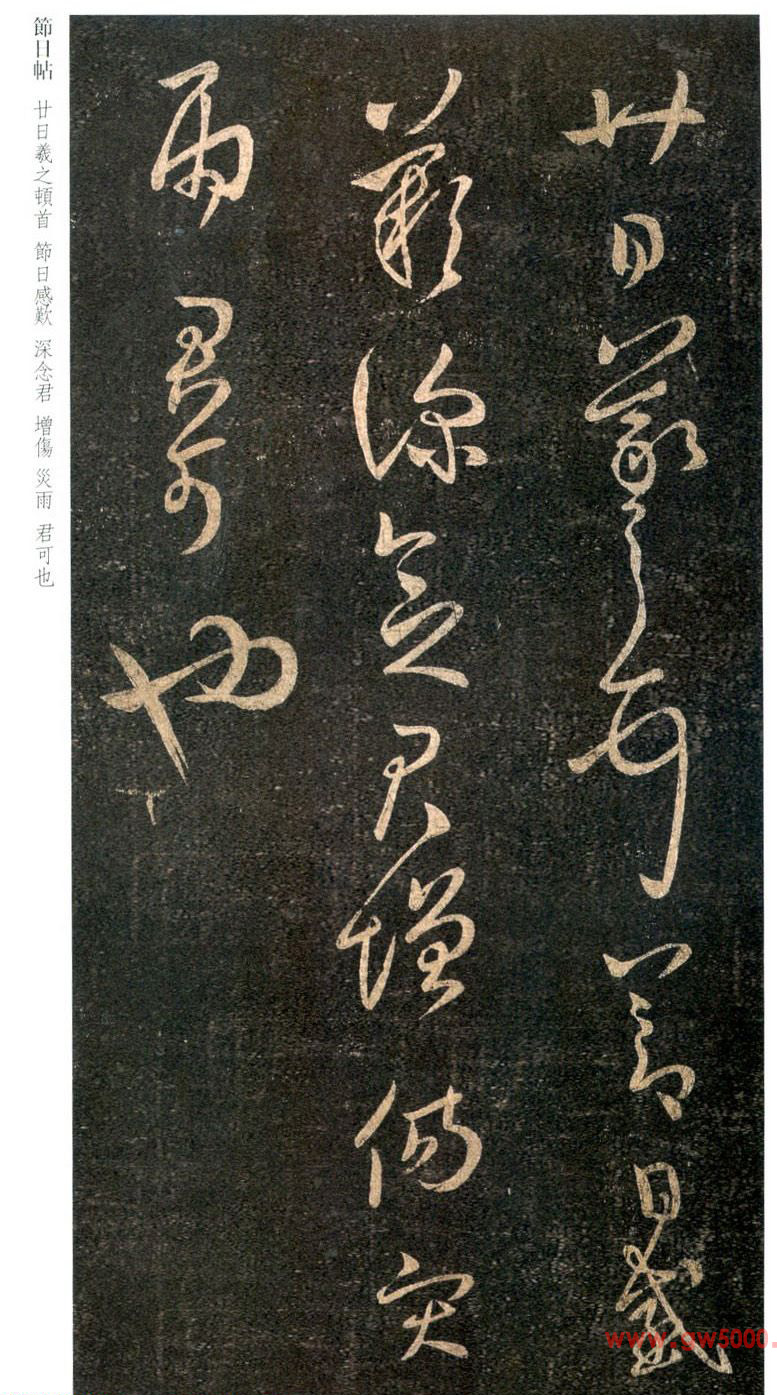 廿日羲之頓首節日感
歎深念君增傷災
雨君可也
節日帖 廿日羲之頓首 節日感歎 深念君 增傷 災雨 君可也
www.gw5000.